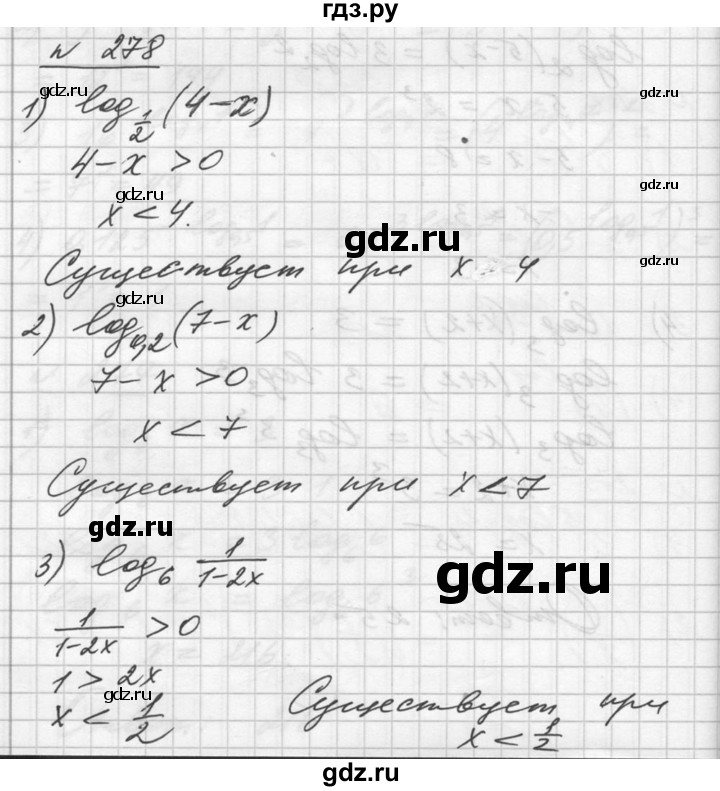 гдз.ру
n 278
gdz.ru
gdz.ru
1) log_{1/2} (4-x)
4-x > 0
gdz.ru
gdz.ru
x < 4.
gdz.ru
Существует при x 4
gdz.ru
gdz.ru
2) log_{0,2} (7-x)
7-x > 0
x < 7
Существует при x < 7
gdz.ru
3) log_6 1/(1-2x)
gdz.ru
1/(1-2x) > 0
1 > 2x
gdz.ru
x < 1/2
Существует при
x < 1/2
gdz.ru